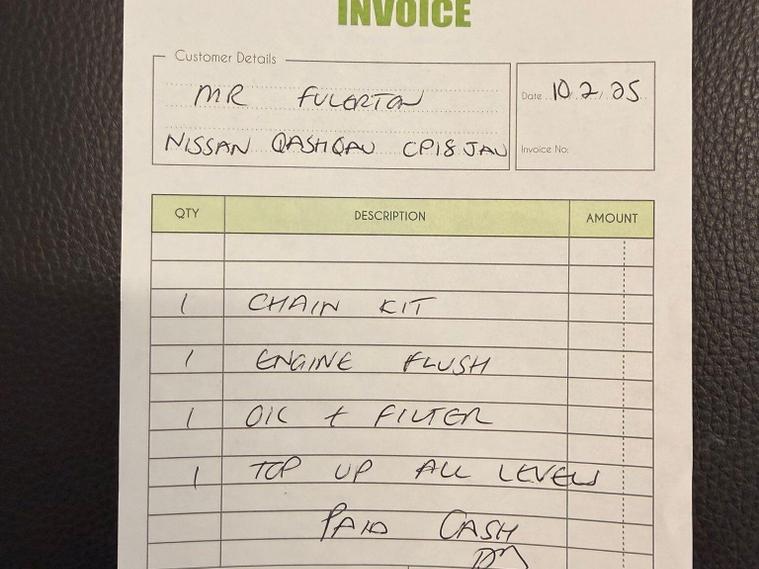 INVOICE
Customer Details
MR FULERTON
Date 10.2.25
NISSAN QASHQAU CP18 JAU
Invoice No:
QTY DESCRIPTION AMOUNT
1 CHAIN KIT
1 ENGINE FLUSH
1 OIL + FILTER
1 TOP UP ALL LEVELS
PAID CASH